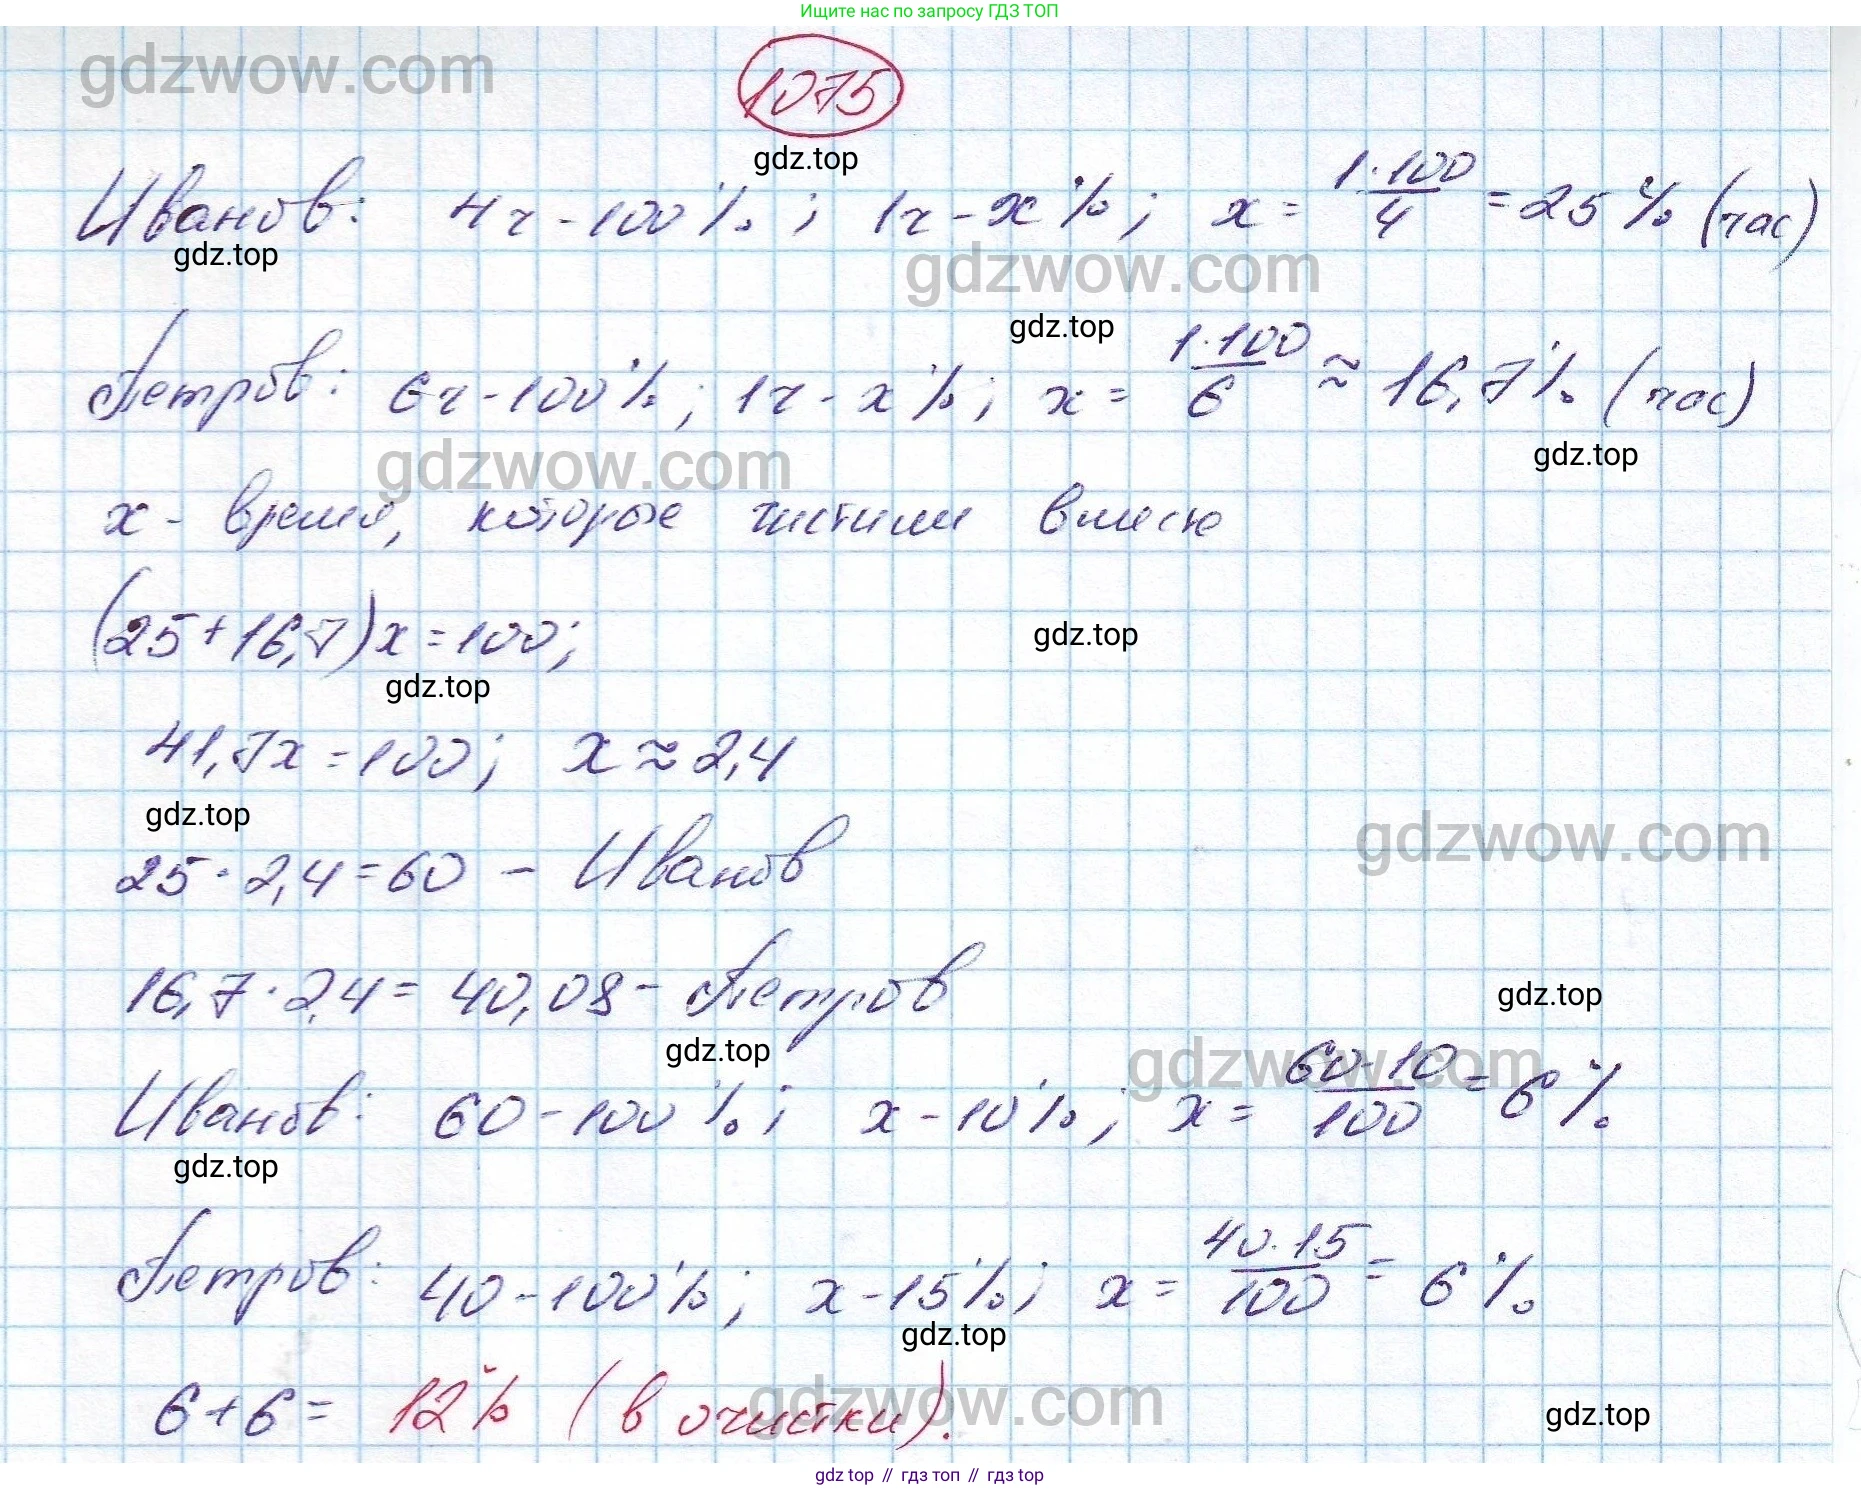 Ищите нас по запросу ГДЗ ТОП
gdzwow.com
1075
gdz.top
Иванов: 4ч - 100%; 1ч - x%; x = 1·100/4 = 25% (час)
gdz.top
gdzwow.com
gdz.top
Петров: 6ч - 100%; 1ч - x%; x = 1·100/6 ≈ 16,7% (час)
gdzwow.com
gdz.top
x - время, которое чистили вместе
(25+16,7)x=100;
gdz.top
gdz.top
41,7x=100; x≈2,4
gdz.top
gdzwow.com
25·2,4=60 - Иванов
16,7·2,4=40,08 - Петров
gdz.top
gdz.top
gdzwow.com
Иванов: 60 - 100%; x - 10%; x = 60·10/100 = 6%
gdz.top
Петров: 40 - 100%; x - 15%; x = 40·15/100 = 6%
gdz.top
6+6= 12% (в очистки).
gdzwow.com
gdz.top
gdz top // гдз топ // гдз top